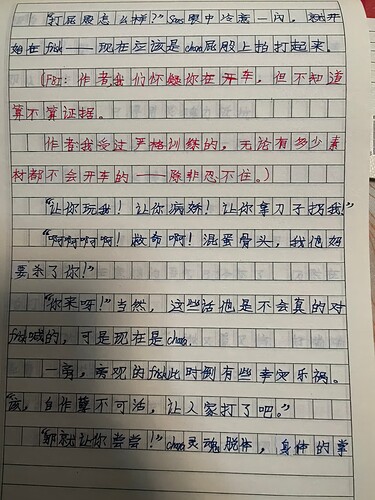 "打屁股怎么样?"Sans眼中冷意一闪,就开
始在frisk——现在应该是chara屁股上拍打起来。
(For:作者,我们怀疑你在开车,但不知道
算不算证据。
作者:我受过严格训练的,无论有多少素
材都不会开车的——除非忍不住。)
"让你玩我!让你病娇!让你拿刀子捅我!"
"啊啊啊啊!救命啊!混蛋骨头,我他妈
要杀了你!"
"你来呀!"当然,这些话他是不会真的对
frisk喊的,可是现在是chara。
一旁,旁观的frisk此时倒有些幸灾乐祸。
"该,自作孽不可活,让人家打了吧。"
"那就让你尝尝!"chara灵魂脱体,身体的掌